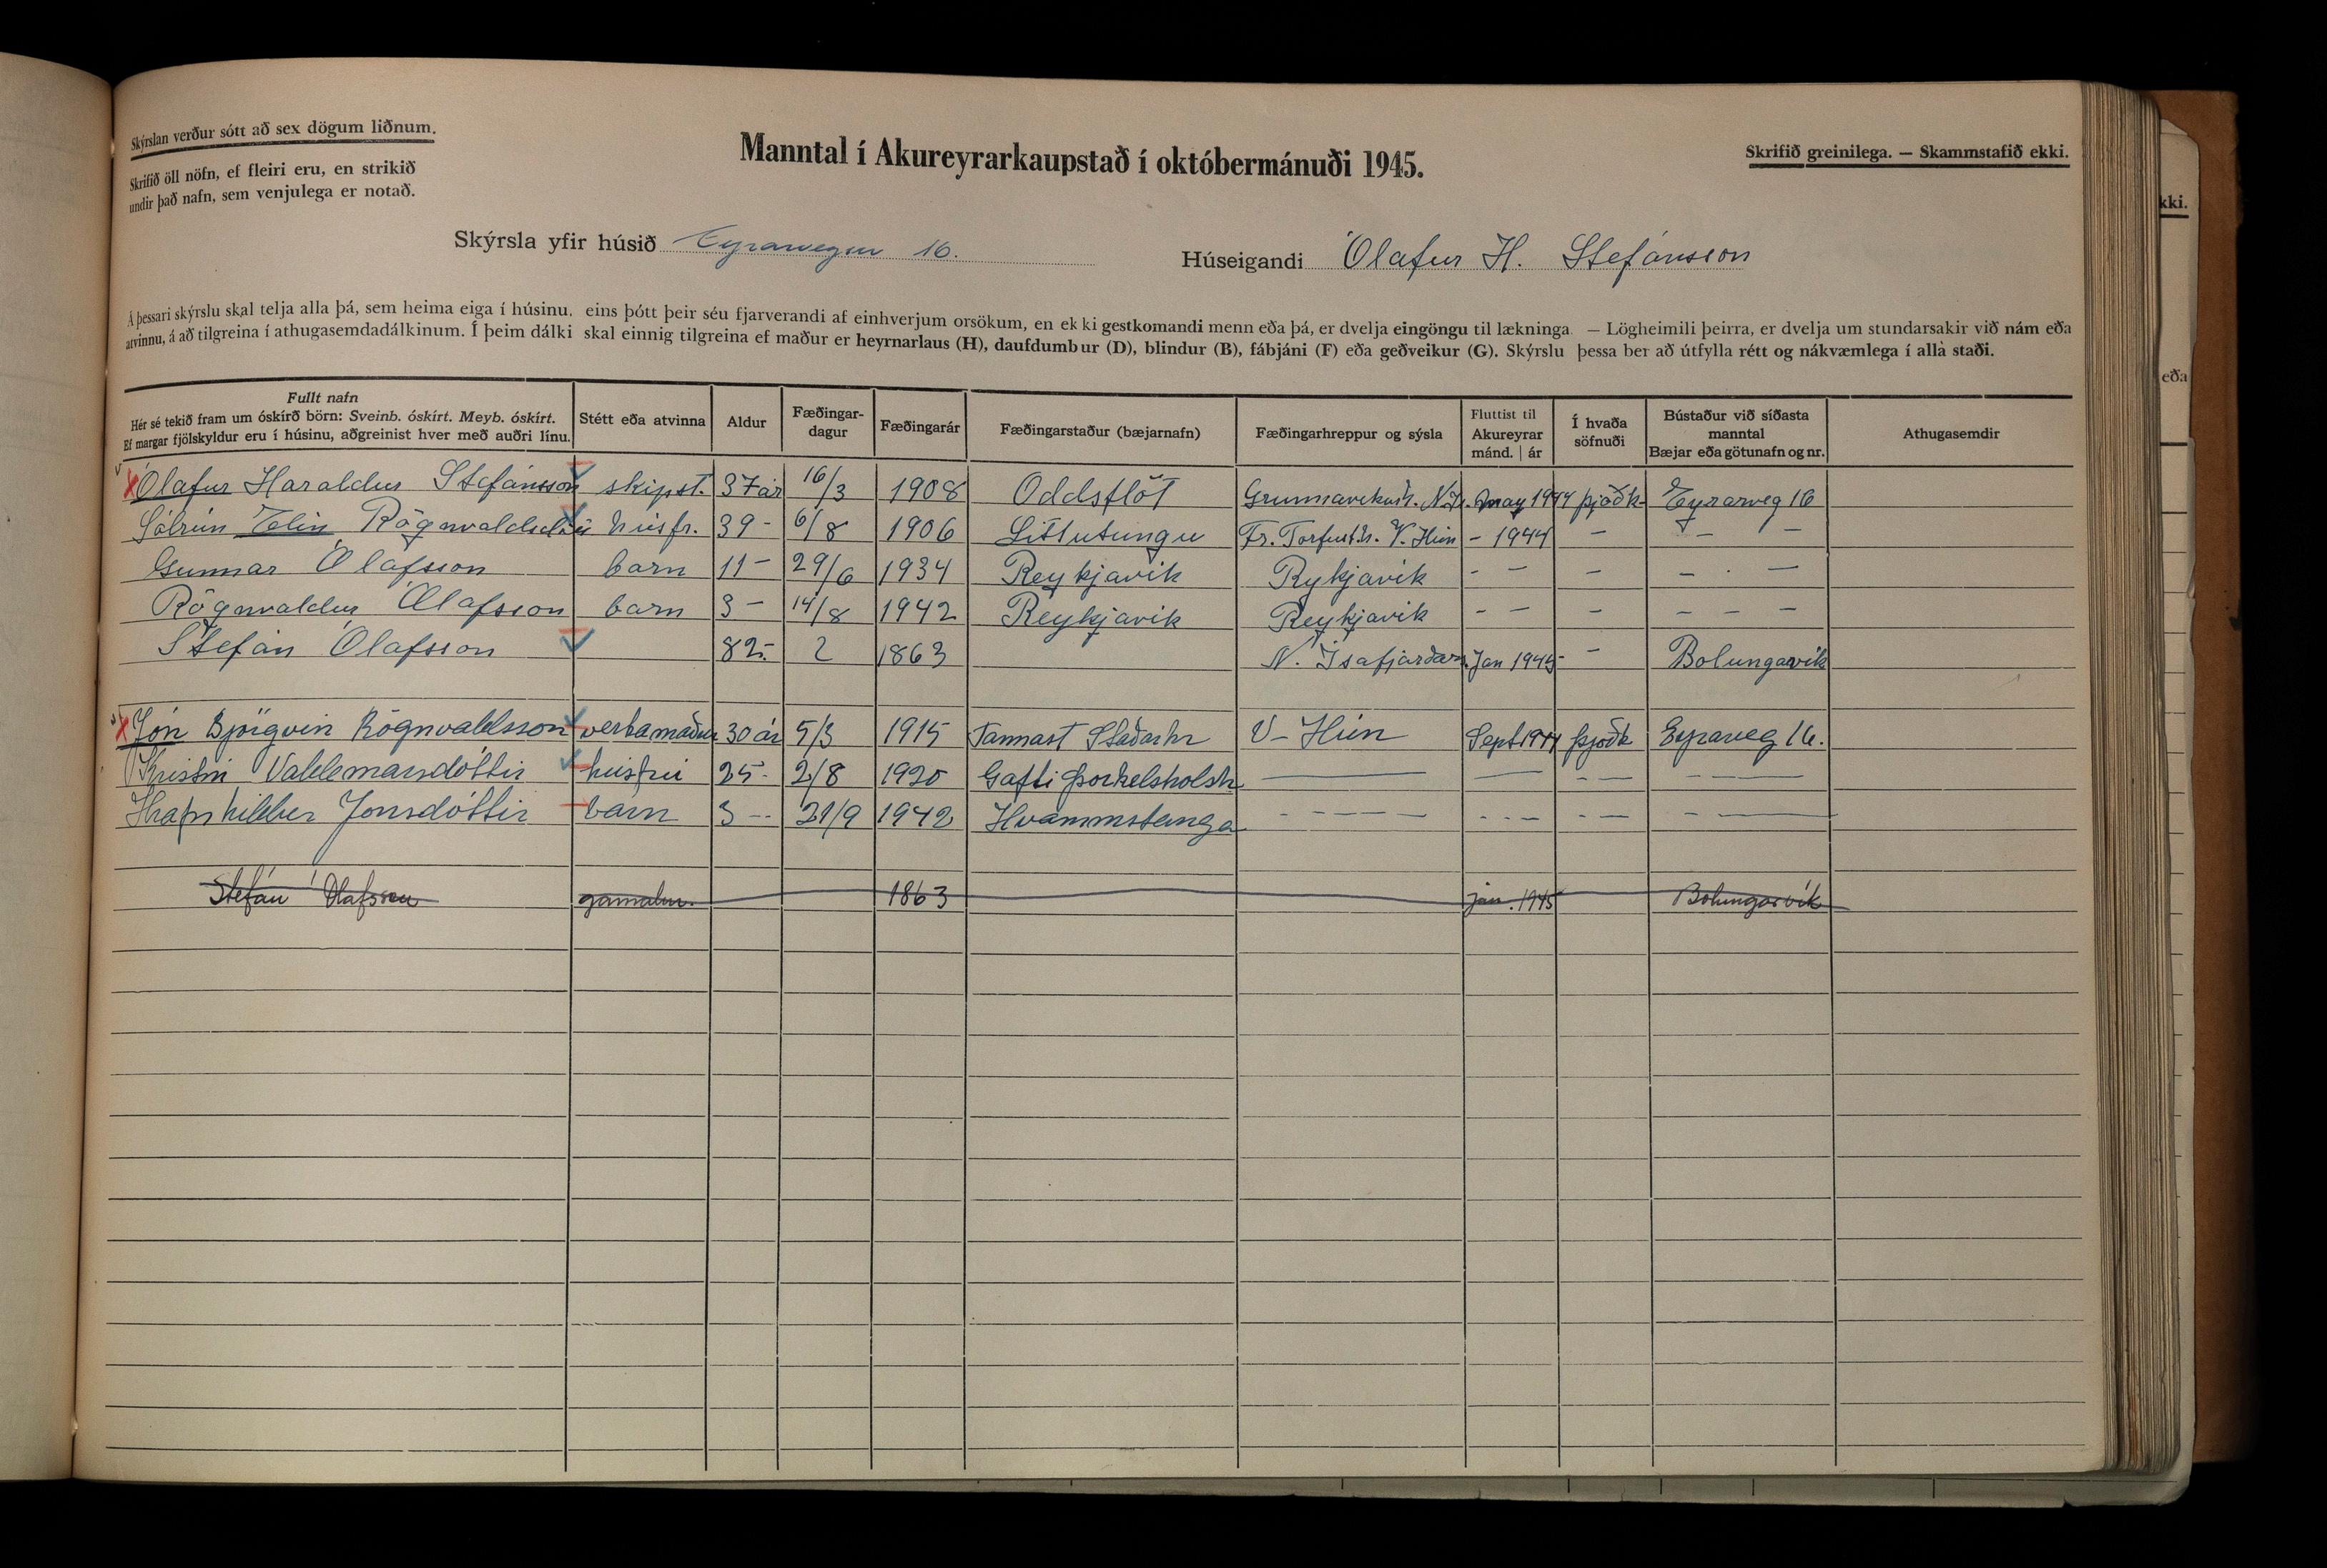 Skýrslan verður sótt að sex dögum liðnum.
Skrifið öll nöfn, ef fleiri eru, en strikið
undir það nafn, sem venjulega er notað.
Manntal í Akureyrarkaupstað í októbermánuði 1945.
Skrifið greinilega. — Skammstafið ekki.
kki.
Skýrsla yfir húsið Eyrarvegur 16.
Húseigandi Ólafur H. Stefánsson
Á þessari skýrslu skal telja alla þá, sem heima eiga í húsinu, eins þótt þeir séu fjarverandi af einhverjum orsökum, en ekki gestkomandi menn eða þá, er dvelja eingöngu til lækninga. — Lögheimili þeirra, er dvelja um stundarsakir við nám eða
atvinnu, á að tilgreina í athugasemdadálkinum. Í þeim dálki skal einnig tilgreina ef maður er heyrnarlaus (H), daufdumbur (D), blindur (B), fábjáni (F) eða geðveikur (G). Skýrslu þessa ber að útfylla rétt og nákvæmlega í alla staði.
eða
Fullt nafn
Hér sé tekið fram um óskírð börn: Sveinb. óskírt. Meyb. óskírt.
Ef margar fjölskyldur eru í húsinu, aðgreinist hver með auðri línu.
Stétt eða atvinna
Aldur
Fæðingar-
dagur
Fæðingarár
Fæðingarstaður (bæjarnafn)
Fæðingarhreppur og sýsla
Fluttist til
Akureyrar
mánd. | ár
Í hvaða
söfnuði
Bústaður við síðasta
manntal
Bæjar eða götunafn og nr.
Athugasemdir
Ólafur Haraldur Stefánsson skipst. 37 ár 16/3 1908 Oddsflöt Grunnavikurh. N.Ís. May 1944 þjóðk- Eyrarveg 16
Sólrún Elin Rögnvaldsdóttir húsfr. 39 - 6/8 1906 Litlutungu Fr. Torfust.h. V. Hún - 1944 - - -
Gunnar Ólafsson barn 11 - 29/6 1934 Reykjavik Rykjavik - - - - - -
Rögnvaldur Ólafsson barn 3 - 14/8 1942 Reykjavik Reykjavik - - - - - -
Stefán Ólafsson 82 - 2 1863 N. Ísafjarðars. Jan 1945 - Bolungavík
Jón Björgvin Rögnvaldsson verkamaður 30 ár 5/3 1915 Tannast Staðarhr V- Hún Sept 1944 þjoðk Eyraveg 16.
Kristín Valdemarsdóttir húsfrú 25 - 2/8 1920 Gafli Þorkelsholsh — — - - - —
Hrafnhildur Jonsdóttir barn 3 - - 21/9 1942 Hvammstanga - - - - - - - - - - - —
Stefán Ólafsson gamalm. 1863 jan. 1945 Bolungarvík